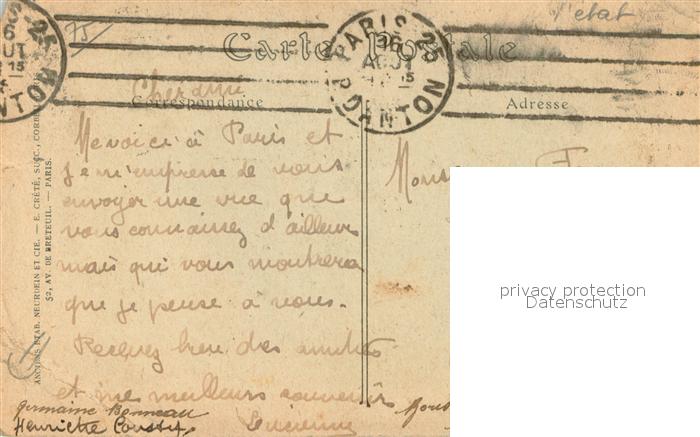 75
l'etat
Carte Postale
PARIS 25
26
AOUT
15
R. DANTON
Cher ami
Correspondance
Adresse
Me voici à Paris et
je m'empresse de vous
envoyer une vue que
vous connaissez d'ailleurs
mais qui vous montrera
que je pense à vous.
Recevez bien des amitiés
et mes meilleurs souvenirs
Lucienne
Germaine Bonneau
Henriette
ANCIENS ETAB. NEURDEIN ET CIE. — E. CRÉTÉ, SUCC., CORBEIL
52, AV. DE BRETEUIL. — PARIS.
privacy protection
Datenschutz